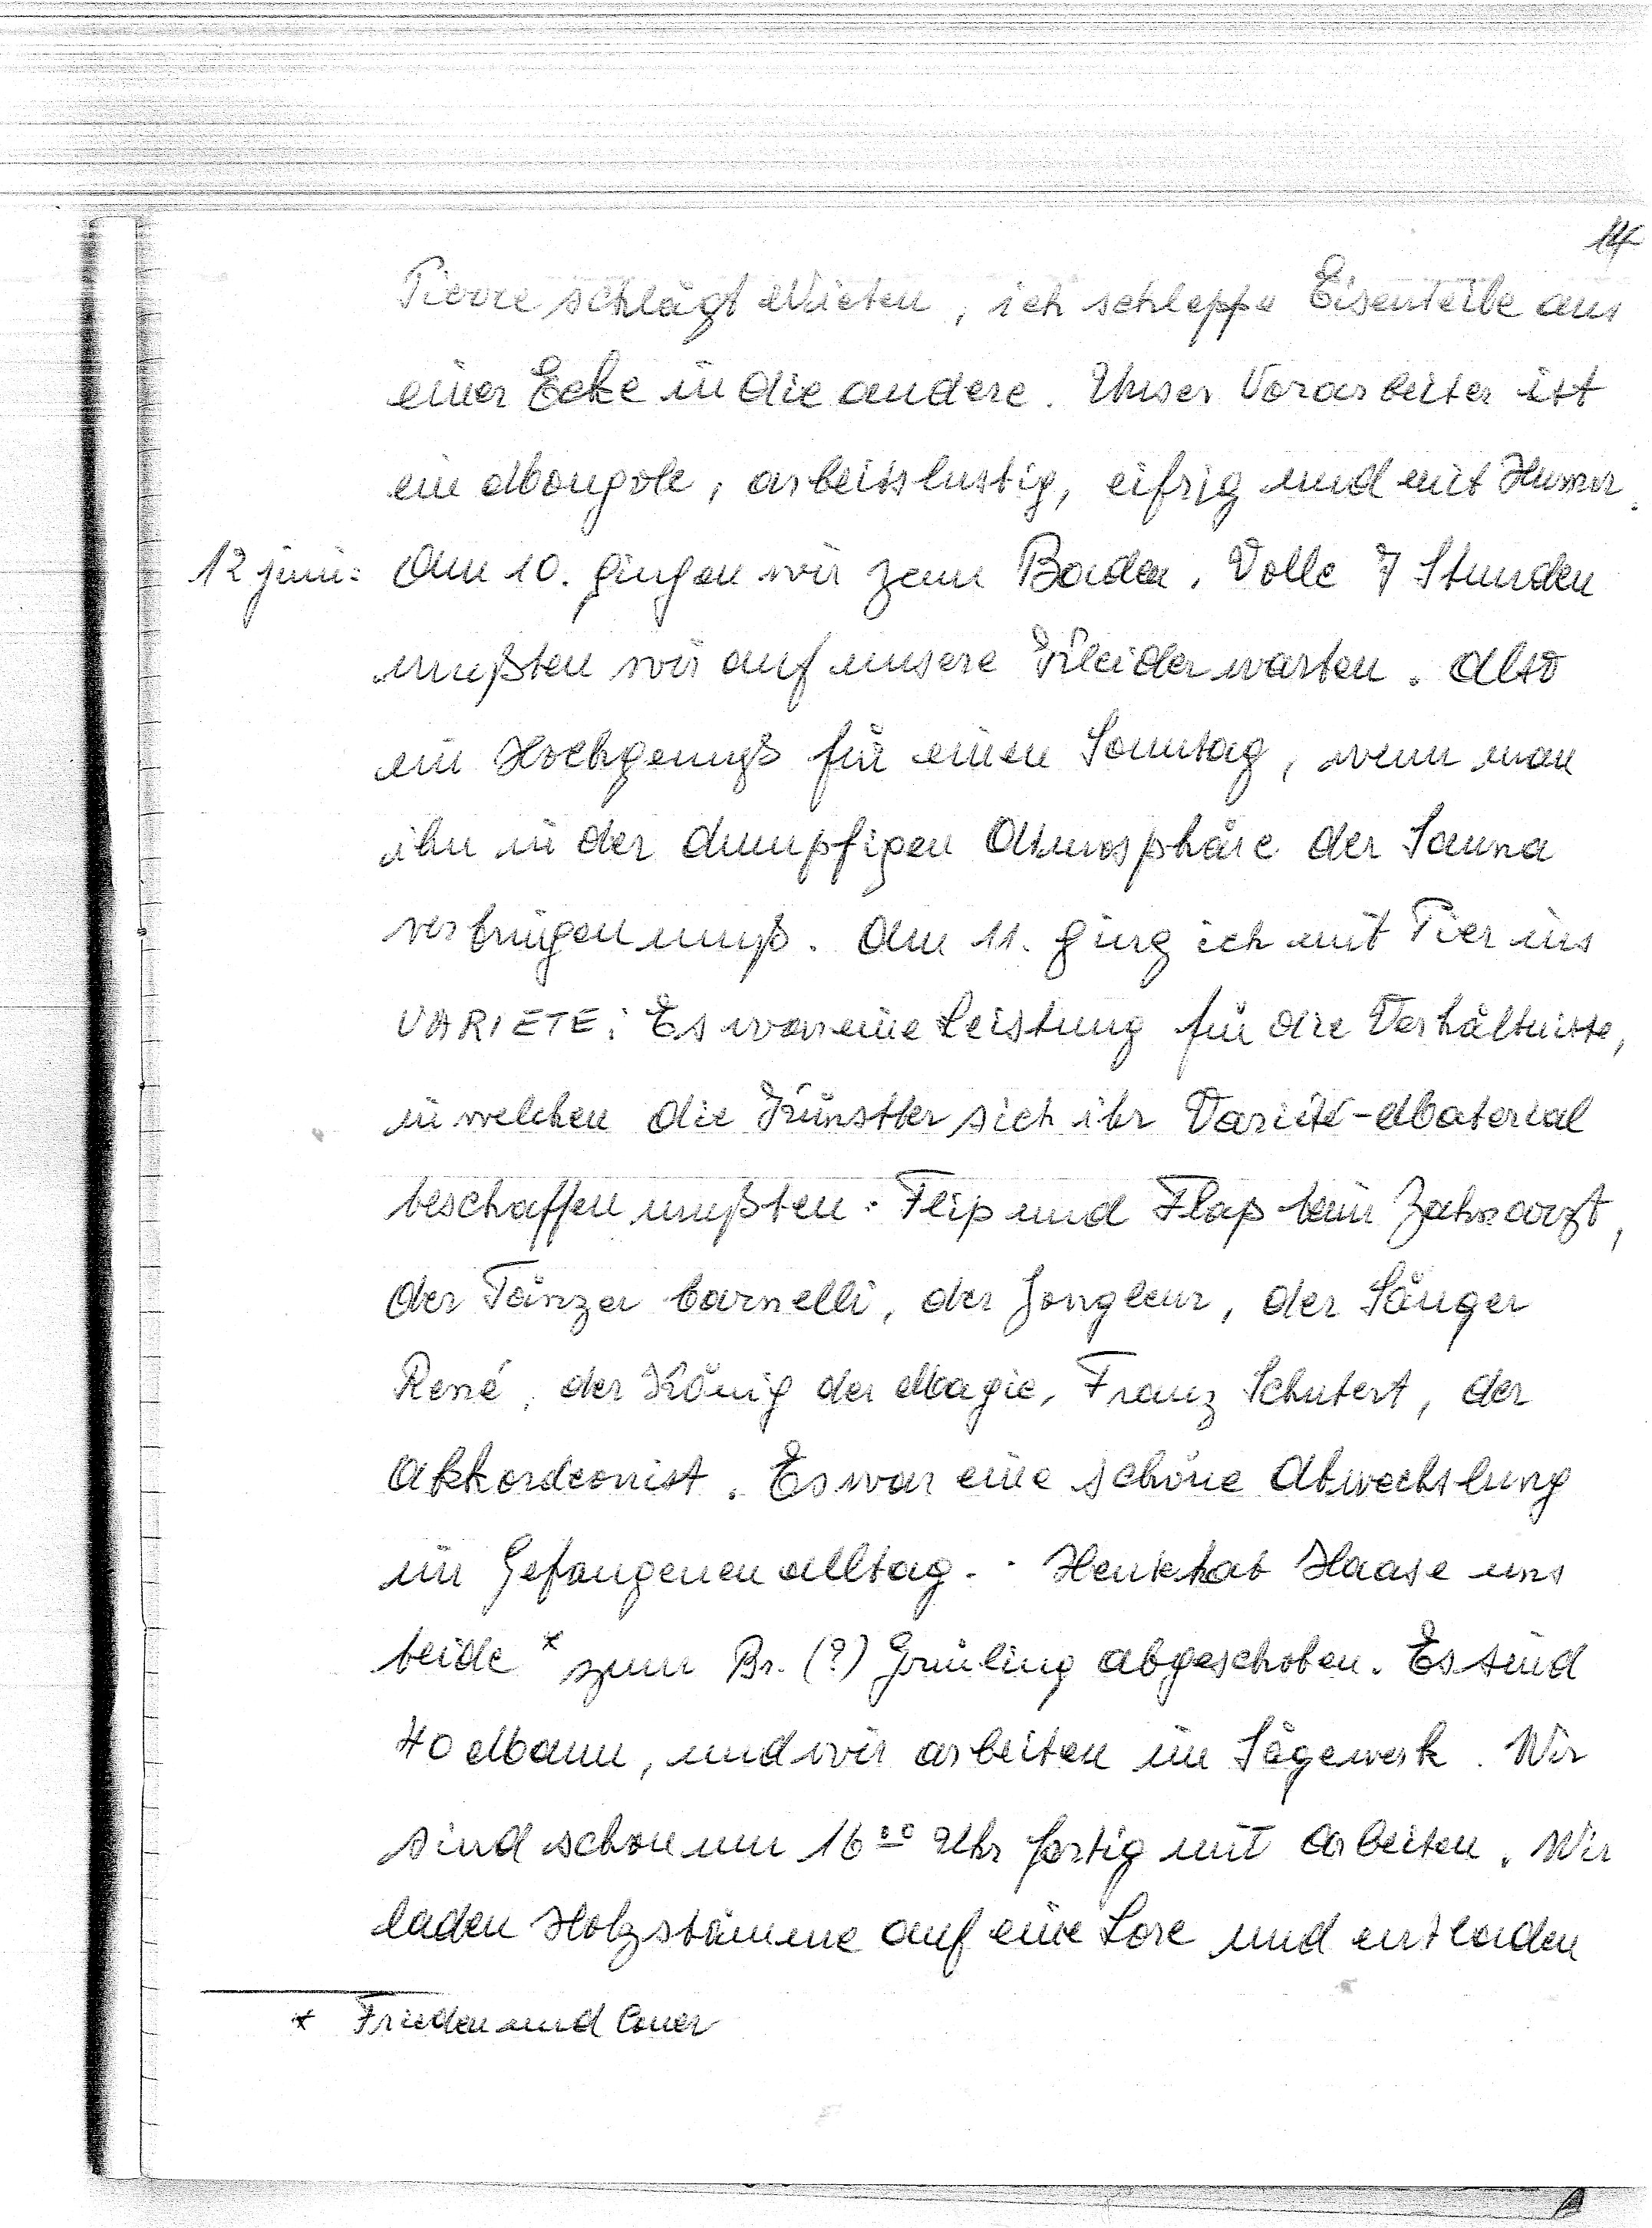 14
Pierre schlägt Nieten, ich schleppe Eisenteile aus
einer Ecke in die andere. Unser Vorarbeiter ist
ein Mongole, arbeitslustig, eifrig und mit Humor.
12 juni: Am 10. gingen wir zum Baden. Volle 7 Stunden
mußten wir auf unsere Kleider warten. Also
ein Hochgenuß für einen Sonntag, wenn man
ihn in der dumpfigen Atmosphäre der Sauna
verbringen muß. Am 11. ging ich mit Pier ins
VARIETE: Es war eine Leistung für die Verhältnisse,
in welchen die Künstler sich ihr Varieté-Material
beschaffen mußten: Flip und Flap beim Zahnarzt,
der Tänzer Carnelli, der Jongleur, der Sänger
René, der König der Magie, Franz Schubert, der
Akkordeonist. Es war eine schöne Abwechslung
im Gefangenenalltag. - Heute hat Haase uns
beide * zum Br. (?) Grüling abgeschoben. Es sind
40 Mann, und wir arbeiten im Sägewerk. Wir
sind schon um 16ºº Uhr fertig mit arbeiten. Wir
laden Holzstämme auf eine Lore und entladen
* Frieden und Coner